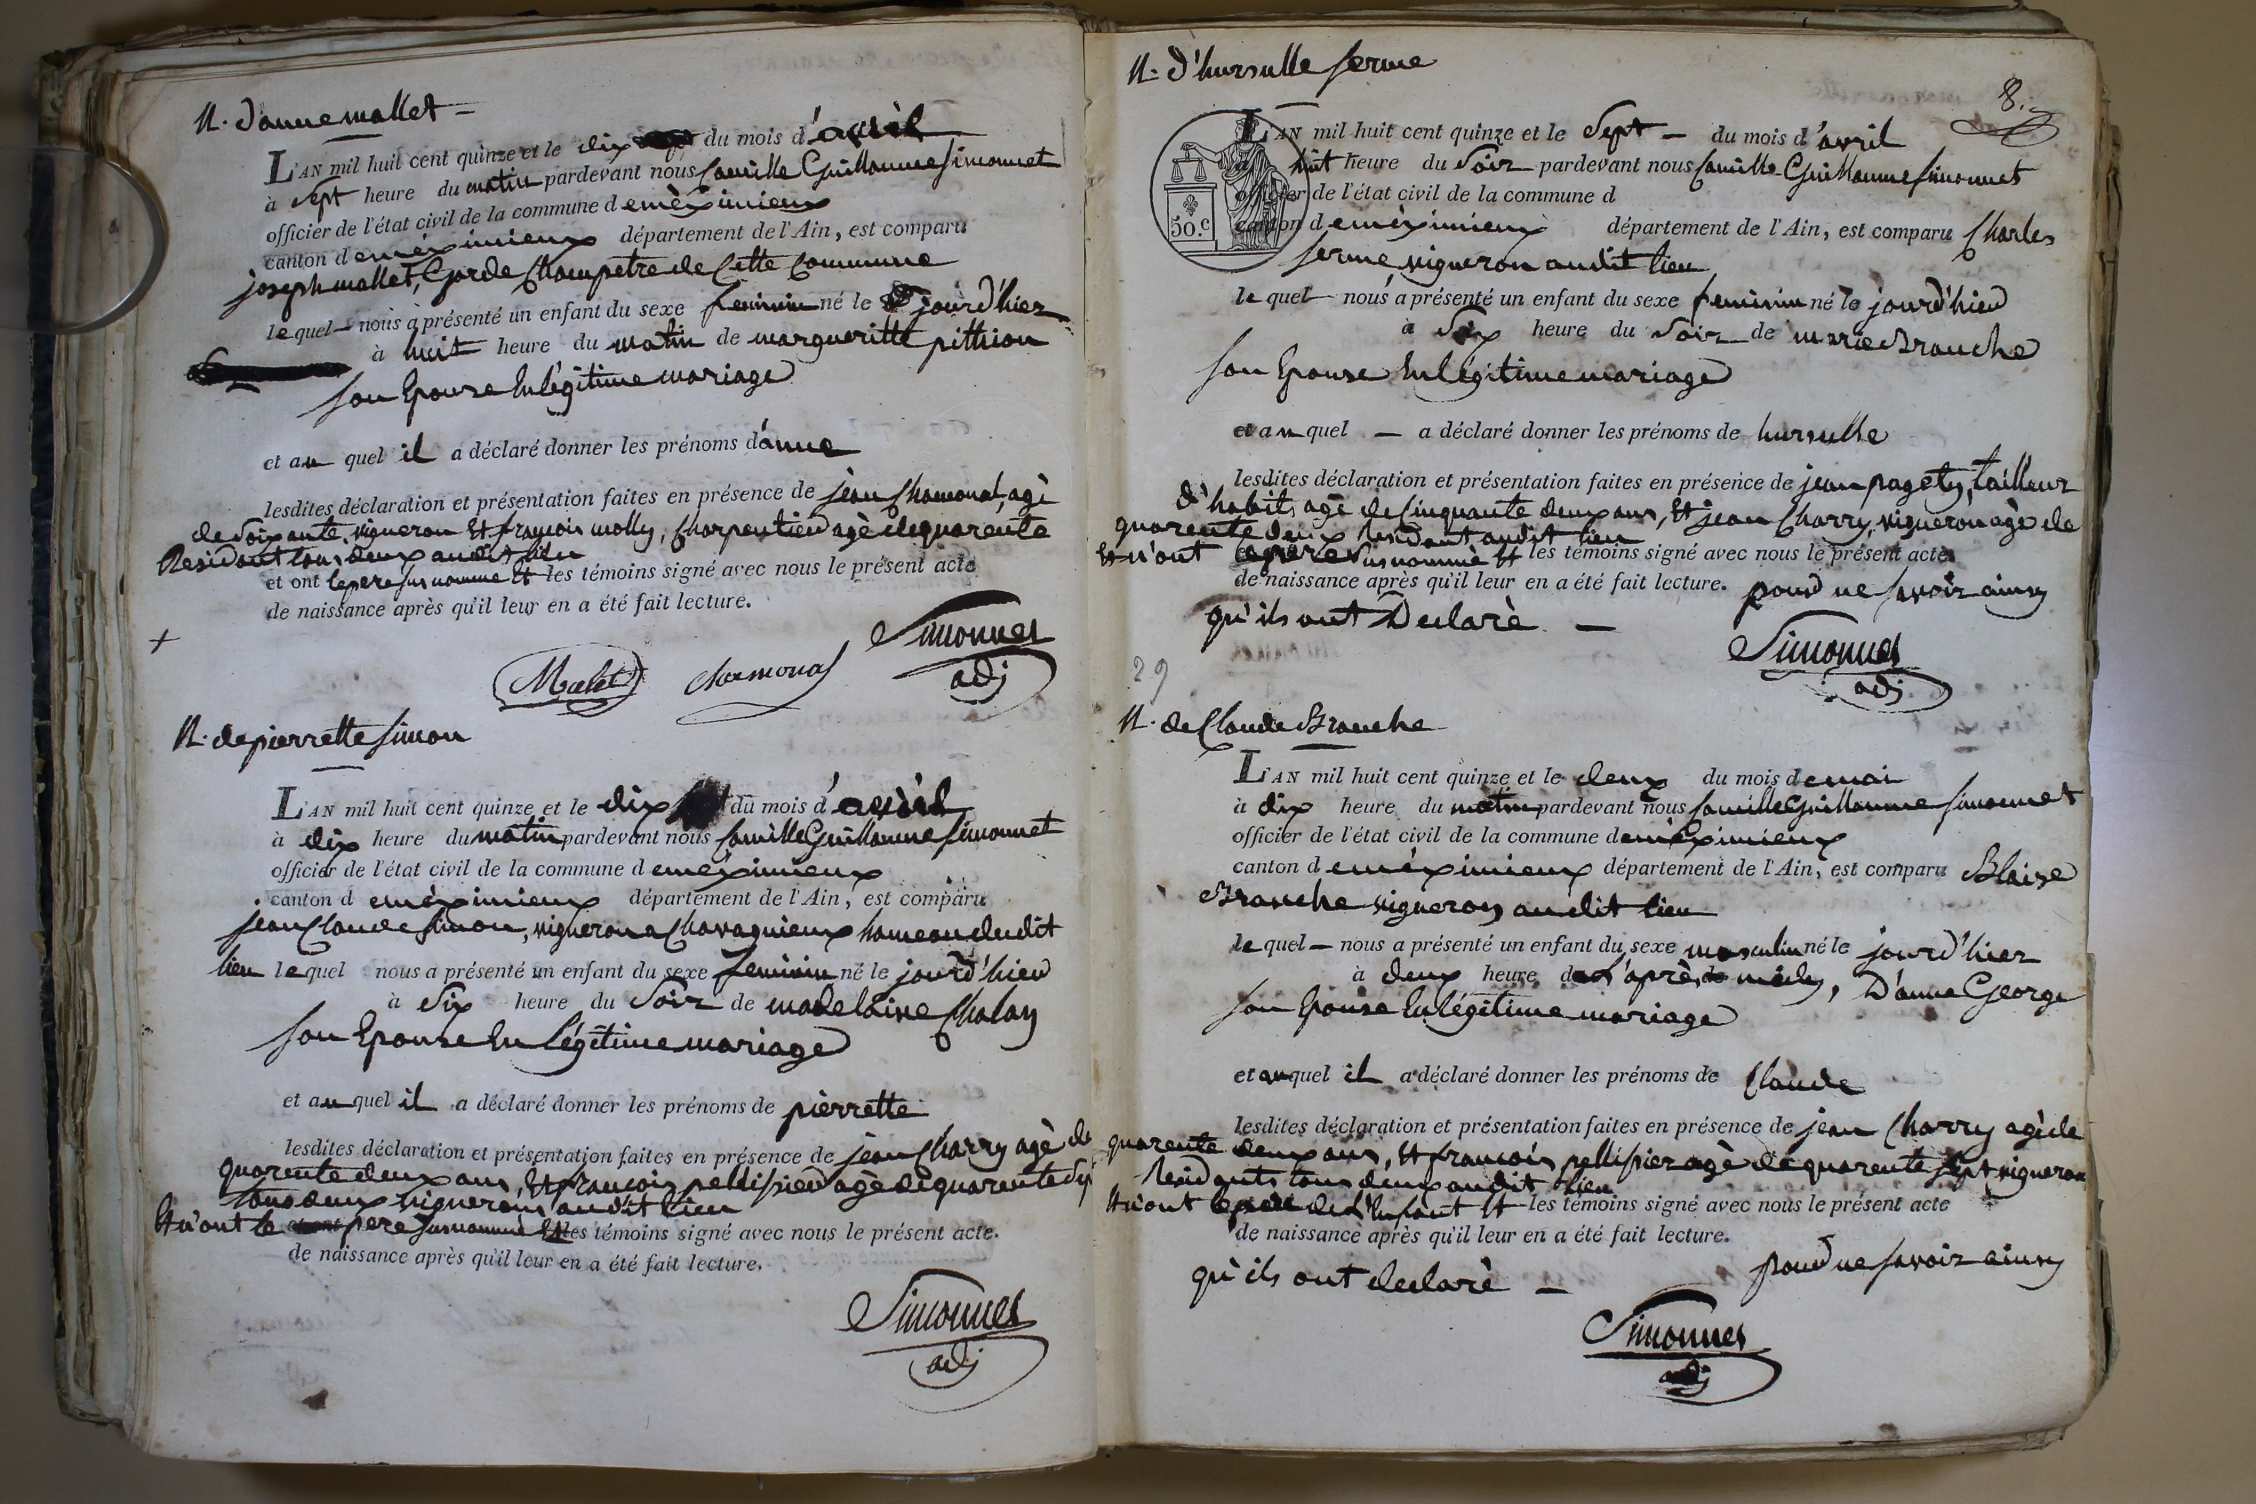 N. d'anne mallet
L'AN mil huit cent quinze et le dix du mois d'avril
à sept heure du matin pardevant nous Camille Guillaume Simonnet
officier de l'état civil de la commune de mèximieux
canton de mèximieux département de l'Ain, est comparu
joseph mallet, Garde Champetre de Cette Commune
lequel nous a présenté un enfant du sexe feminin né le jourd'hier
à huit heure du matin de margueritte pithion
son Epouse En légitime mariage
et au quel il a déclaré donner les prénoms d'anne
lesdites déclaration et présentation faites en présence de jean Chamonal, agè
de soixante, vigneron Et françois molly, Charpentier agè de quarente
Residant tous deux audit lieu
et ont le pere susnomme Et les témoins signé avec nous le présent acte
de naissance après qu'il leur en a été fait lecture.
Malet Chamonal Simonnet
adj
N. de pierrette Simon
L'AN mil huit cent quinze et le dix du mois d'avril
à dix heure du matin pardevant nous Camille Guillaume Simonnet
officier de l'état civil de la commune de mèximieux
canton de mèximieux département de l'Ain, est comparu
jean Claude Simon, vigneron a Chavagnieux hameau dudit
lieu lequel nous a présenté un enfant du sexe feminin né le jourd'hier
à Six heure du Soir de madelaine Chalay
son Epouse En légitime mariage
et au quel il a déclaré donner les prénoms de pierrette
lesdites déclaration et présentation faites en présence de jean Charry agè de
quarente deux ans, Et françois pellissier agè de quarente sept
tous deux vignerons audit lieu
Et n'ont le pere susnommé Et les témoins signé avec nous le présent acte.
de naissance après qu'il leur en a été fait lecture.
Simonnet
adj
N. d'hursulle ferme
8.
L'AN mil huit cent quinze et le Sept du mois d'avril
à huit heure du Soir pardevant nous Camille Guillaume Simonnet
officier de l'état civil de la commune d
canton de mèximieux département de l'Ain, est comparu Charles
50.c
ferme vigneron audit lieu
lequel nous a présenté un enfant du sexe feminin né le jourd'hier
à Six heure du Soir de marie Branche
son Epouse En légitime mariage
et au quel a déclaré donner les prénoms de hursulle
lesdites déclaration et présentation faites en présence de jean pagety, tailleur
d'habits agè de Cinquante deux ans, Et jean Charry, vigneron agè de
quarente deux Residant audit lieu
Et n'ont le pere susnommé Et les témoins signé avec nous le présent acte
de naissance après qu'il leur en a été fait lecture. pour ne savoir ainsy
qu'ils ont Declarè
Simonnet
adj
29
N. de Claude Branche
L'AN mil huit cent quinze et le deux du mois de mai
à dix heure du matin pardevant nous Camille Guillaume Simonnet
officier de l'état civil de la commune de mèximieux
canton de mèximieux département de l'Ain, est comparu Blaise
Branche vigneron audit lieu
lequel nous a présenté un enfant du sexe masculin né le jourd'hier
à deux heure de l'après midy, D'anne George
son Epouse En légitime mariage
et auquel il a déclaré donner les prénoms de Claude
lesdites déclaration et présentation faites en présence de jean Charry agè de
quarente deux ans, Et françois pellissier agè de quarente sept vigneron
Residants tous deux audit lieu
Et n'ont le pere de l'Enfant Et les témoins signé avec nous le présent acte
de naissance après qu'il leur en a été fait lecture.
pour ne savoir ainsy
qu'ils ont declarè
Simonnet
adj